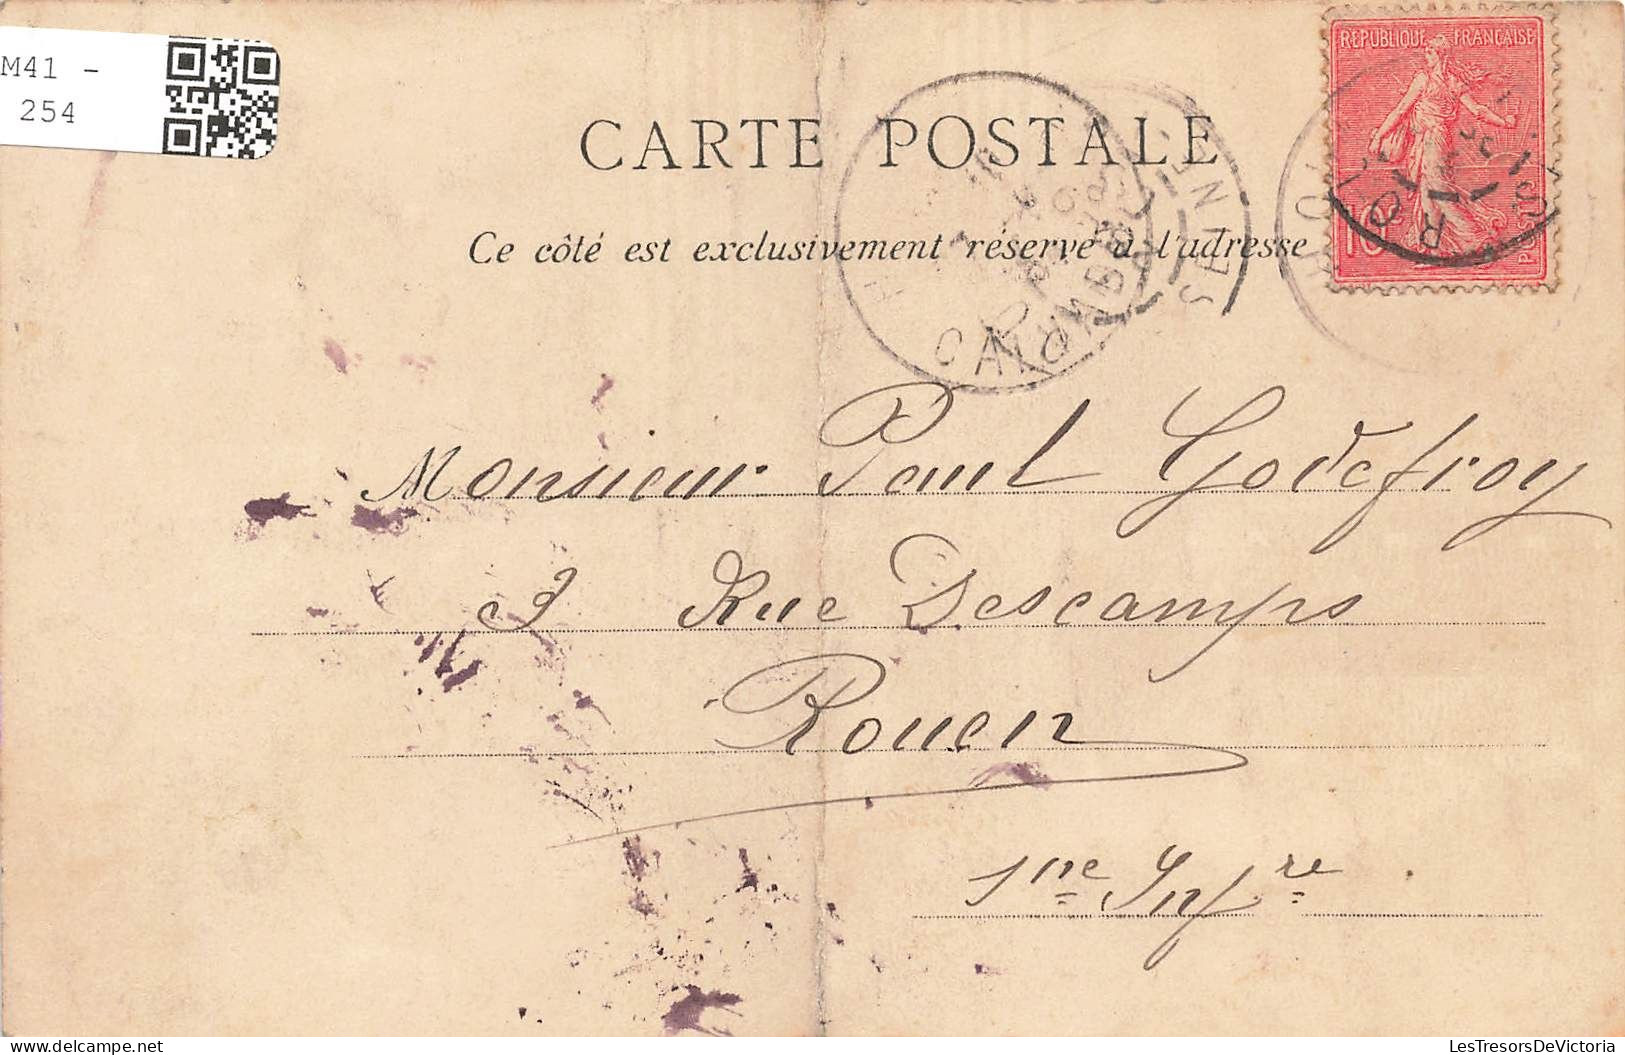 M41 -
254
CARTE POSTALE
Ce côté est exclusivement réservé à l'adresse
REPUBLIQUE FRANÇAISE
10
POSTES
SEINE
Monsieur Paul Godefroy
3 Rue Descamps
Rouen
Sne Infre
LesTresorsDeVictoria